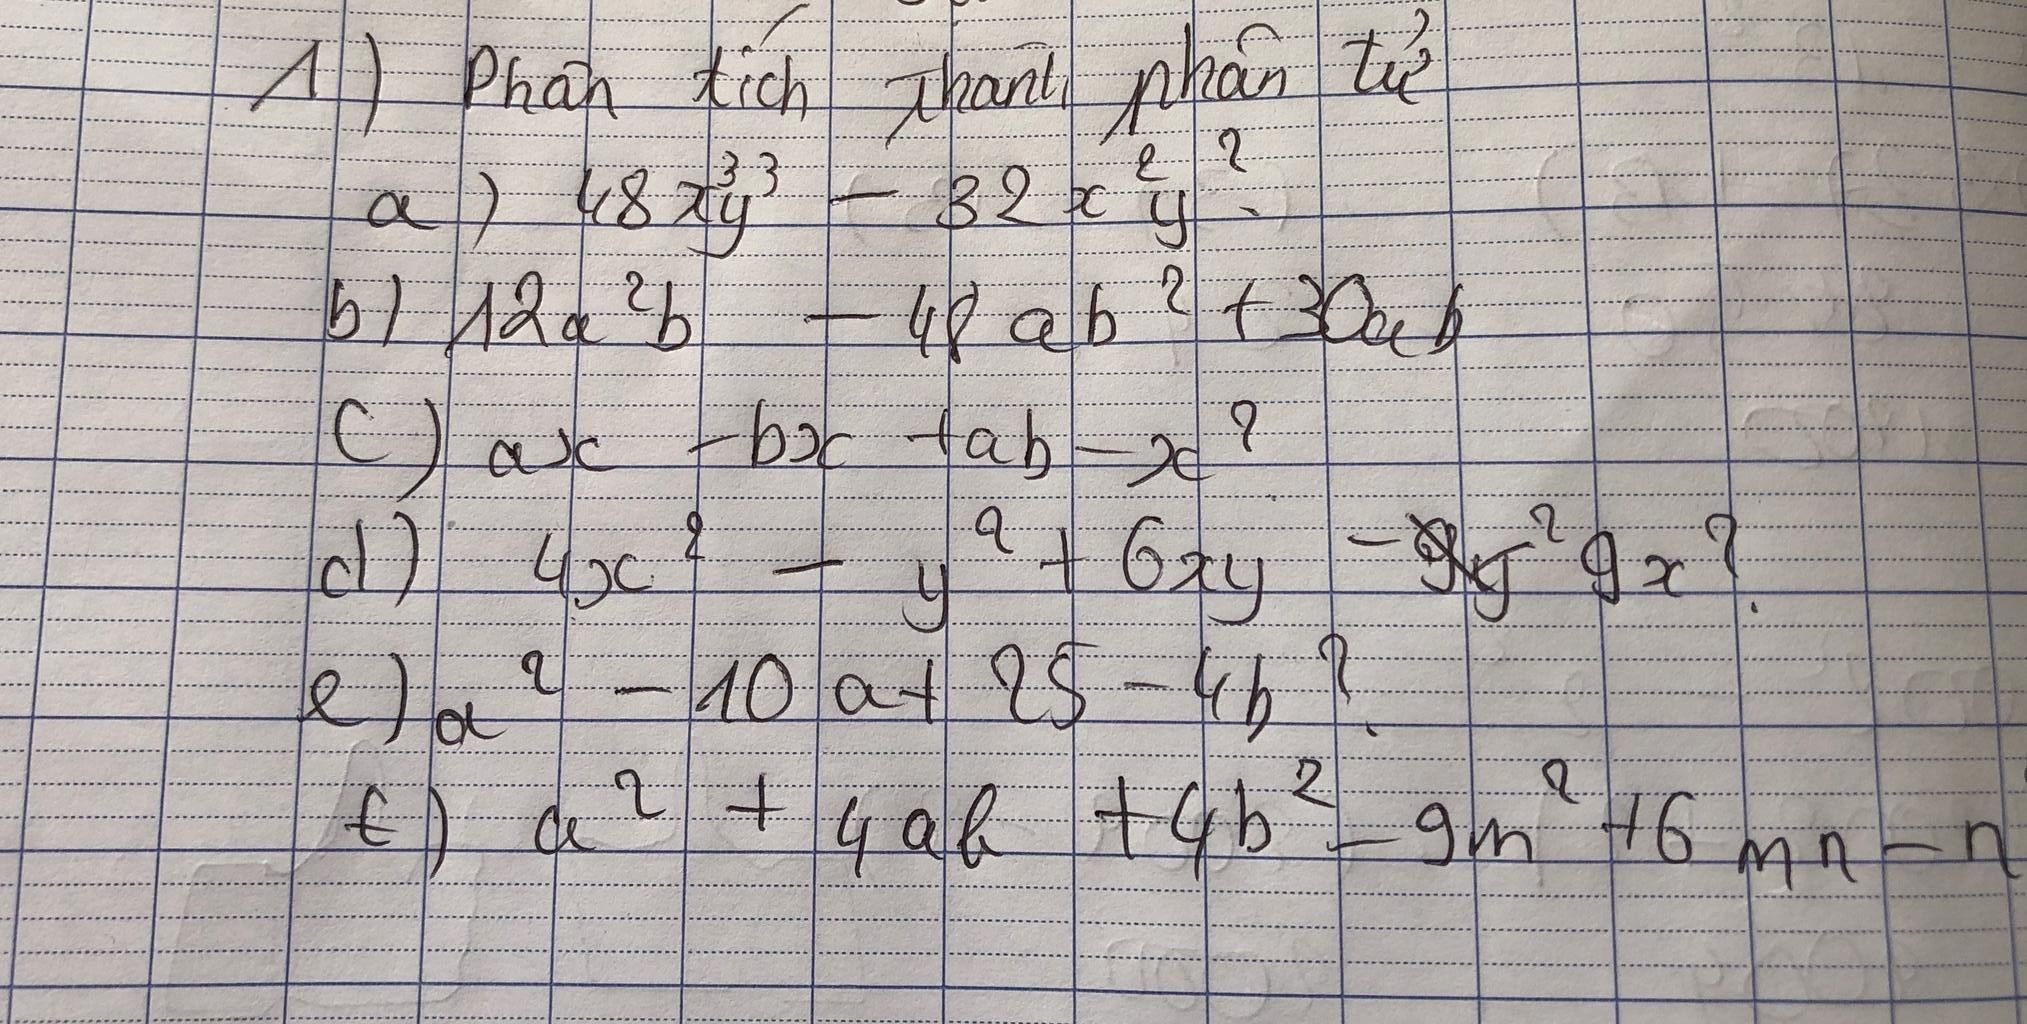 1) Phân tích thành phân tử
a) 48x³y³ - 32x²y².
b) 12a²b - 48ab² + 30ab
c) ax - bx + ab - x²
d) 4x² - y² + 6xy - 9x².
e) a² - 10a + 25 - 4b².
f) a² + 4ab + 4b² - 9m² + 6mn - n